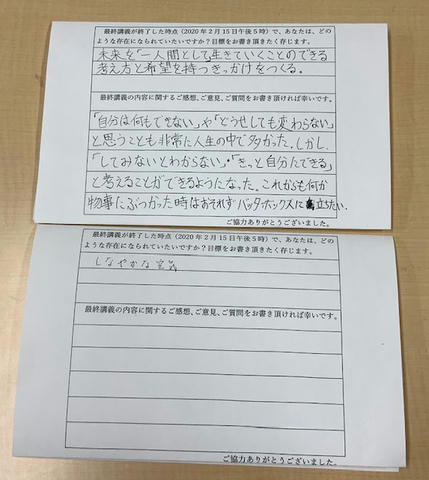 最終講義が終了した時点(2020年2月15日午後5時)で、あなたは、どの
ような存在になられていたいですか?目標をお書き頂きたく存じます。
未来を「一人間として生きていくことのできる
考え方と希望を持つきっかけをつくる。
最終講義の内容に関するご感想、ご意見、ご質問をお書き頂ければ幸いです。
「自分は何もできない」や「どうせしても変わらない」
と思うことも非常に人生の中で多かった。しかし、
「してみないとわからない」・「きっと自分にできる」
と考えることができるようになった。これからも何か
物事にぶつかった時はおそれずバッターボックスに立ちたい。
ご協力ありがとうございました。
最終講義が終了した時点(2020年2月15日午後5時)で、あなたは、どの
ような存在になられていたいですか?目標をお書き頂きたく存じます。
しなやかな空気
最終講義の内容に関するご感想、ご意見、ご質問をお書き頂ければ幸いです。
ご協力ありがとうございました。